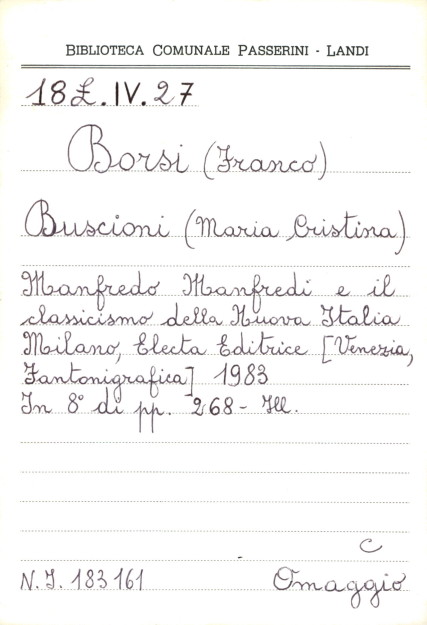 BIBLIOTECA COMUNALE PASSERINI - LANDI
18£.IV.27
Borsi (Franco)
Buscioni (Maria Cristina)
Manfredo Manfredi e il
classicismo della Nuova Italia
Milano, Electa Editrice [Venezia,
Fantonigrafica] 1983
In 8° di pp. 268 - Ill.
C
N.I. 183161 Omaggio